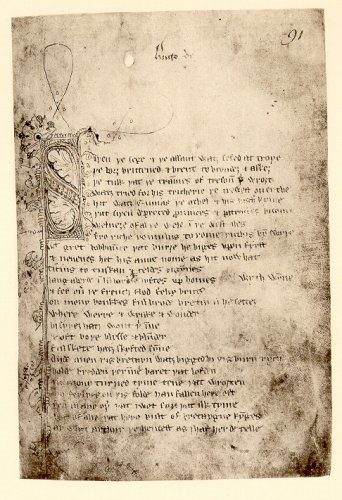 91
Hugo de
Siþen þe sege & þe assaut watz sesed at troye
þe borȝ brittened & brent to brondeȝ & askez
þe tulk þat þe trammes of tresoun þer wroȝt
watz tried for his tricherie þe trewest on erthe
hit watz Ennias þe athel & his highe kynde
þat siþen depreced prouinces & patrounes bicome
welneȝe of al þe wele in þe west iles
fro riche romulus to rome ricchis hym swyþe
gret bobbaunce þat burȝe he biges vpon fyrst
& neuenes hit his aune nome as hit now hat
ticius to tuskan & teldes bigynnes
langaberde in lumbardie lyftes vp homes
& fer ouer þe french flod felix brutus
on mony bonkkes ful brode bretayn he settez
wyth wynne
where werre & wrake & wonder
bi syþez hatz wont þerinne
& oft boþe blysse & blunder
ful skete hatz skyfted synne
Ande quen þis bretayn watz bigged bi þis burn rych
bolde bredden þerinne baret þat lofden
in mony turned tyme tene þat wroȝten
mo ferlyes on þis folde han fallen here oft
þen in any oþer þat I wot syn þat ilk tyme
bot of alle þat here bult of bretaygne kynges
ay watz arthur þe hendest as I haf herde telle